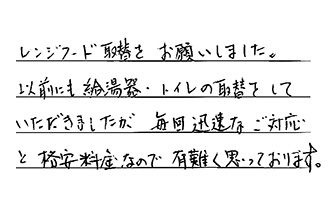 レンジフード取替をお願いしました。
以前にも給湯器・トイレの取替をして
いただきましたが毎回迅速なご対応
と格安料金なので有難く思っております。